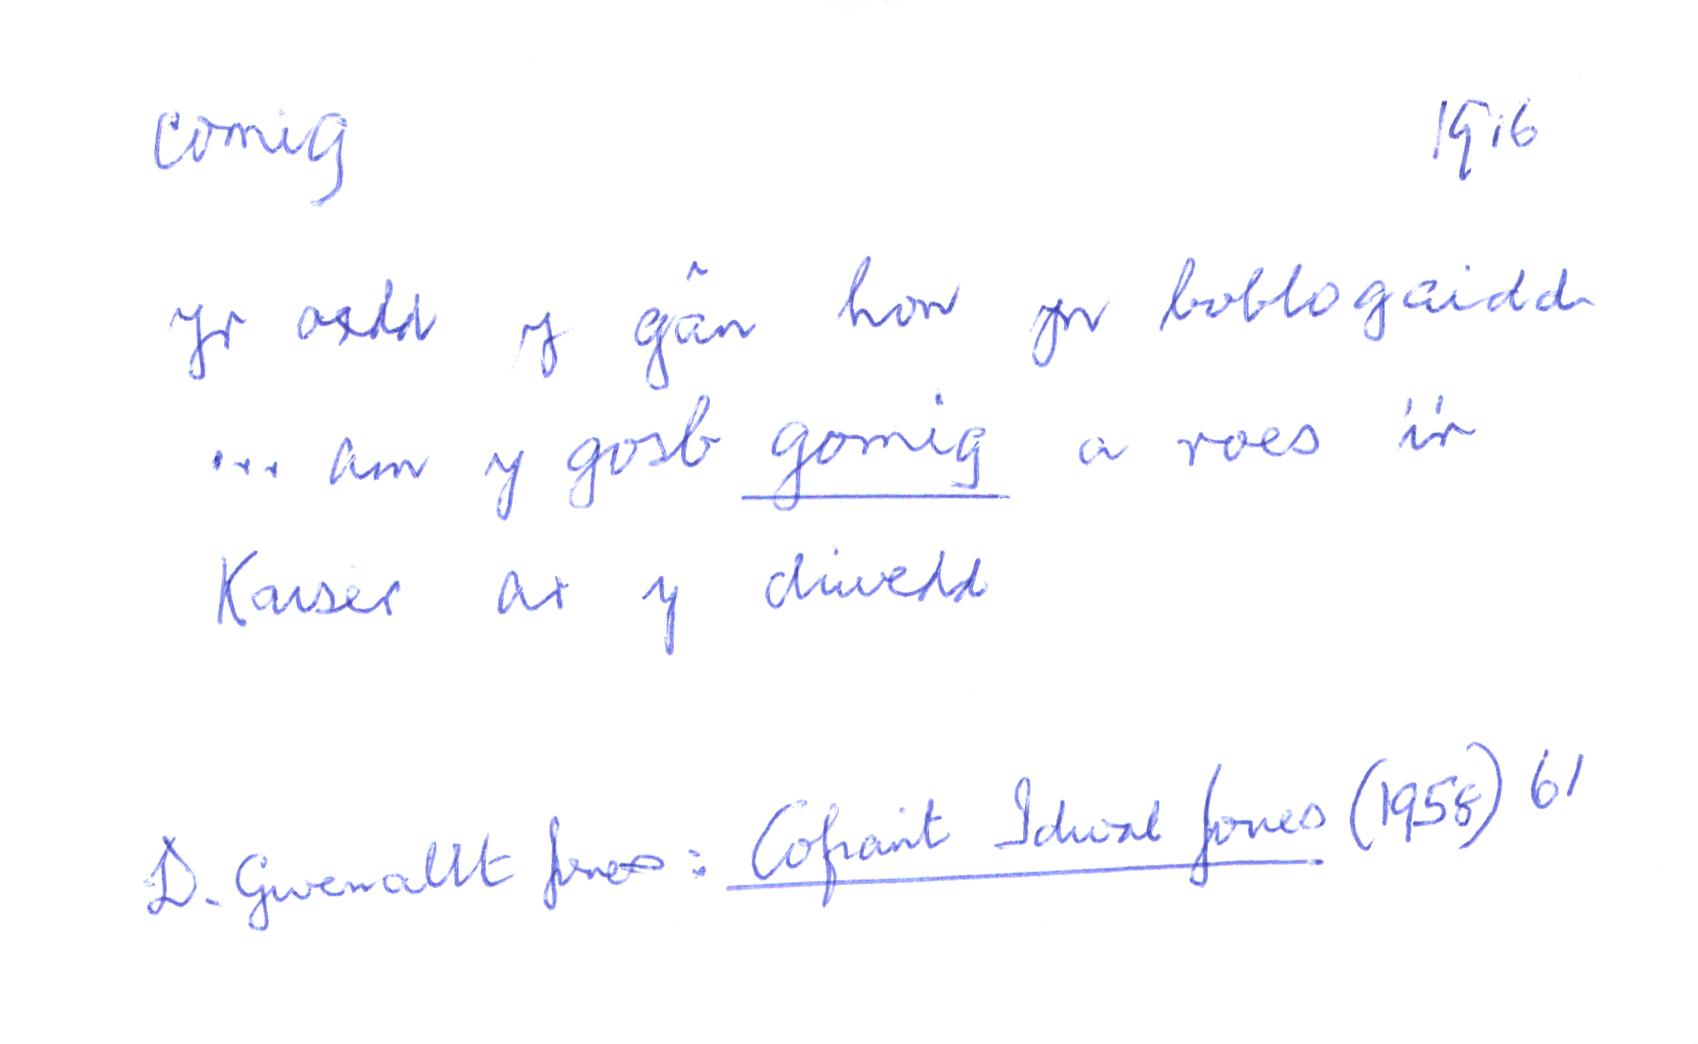 comig 1916
yr oedd y gân hon yn boblogaidd
... am y gosb gomig a roes i'r
Kaiser ar y diwedd
D. Gwenallt Jones: Cofiant Idwal Jones (1958) 61